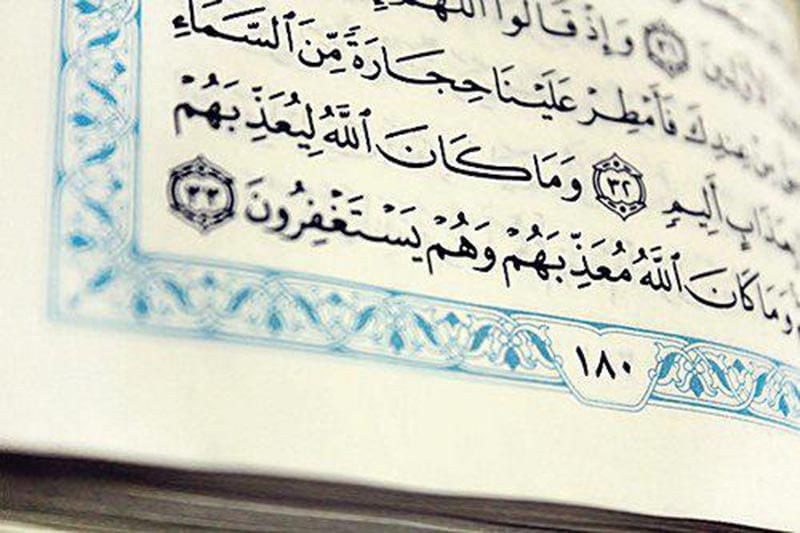 الأولين ٣١ وإذ قالوا اللهم
عندك فأمطر علينا حجارة من السماء
بعذاب أليم ٣٢ وما كان الله ليعذبهم
وما كان الله معذبهم وهم يستغفرون ٣٣
١٨٠